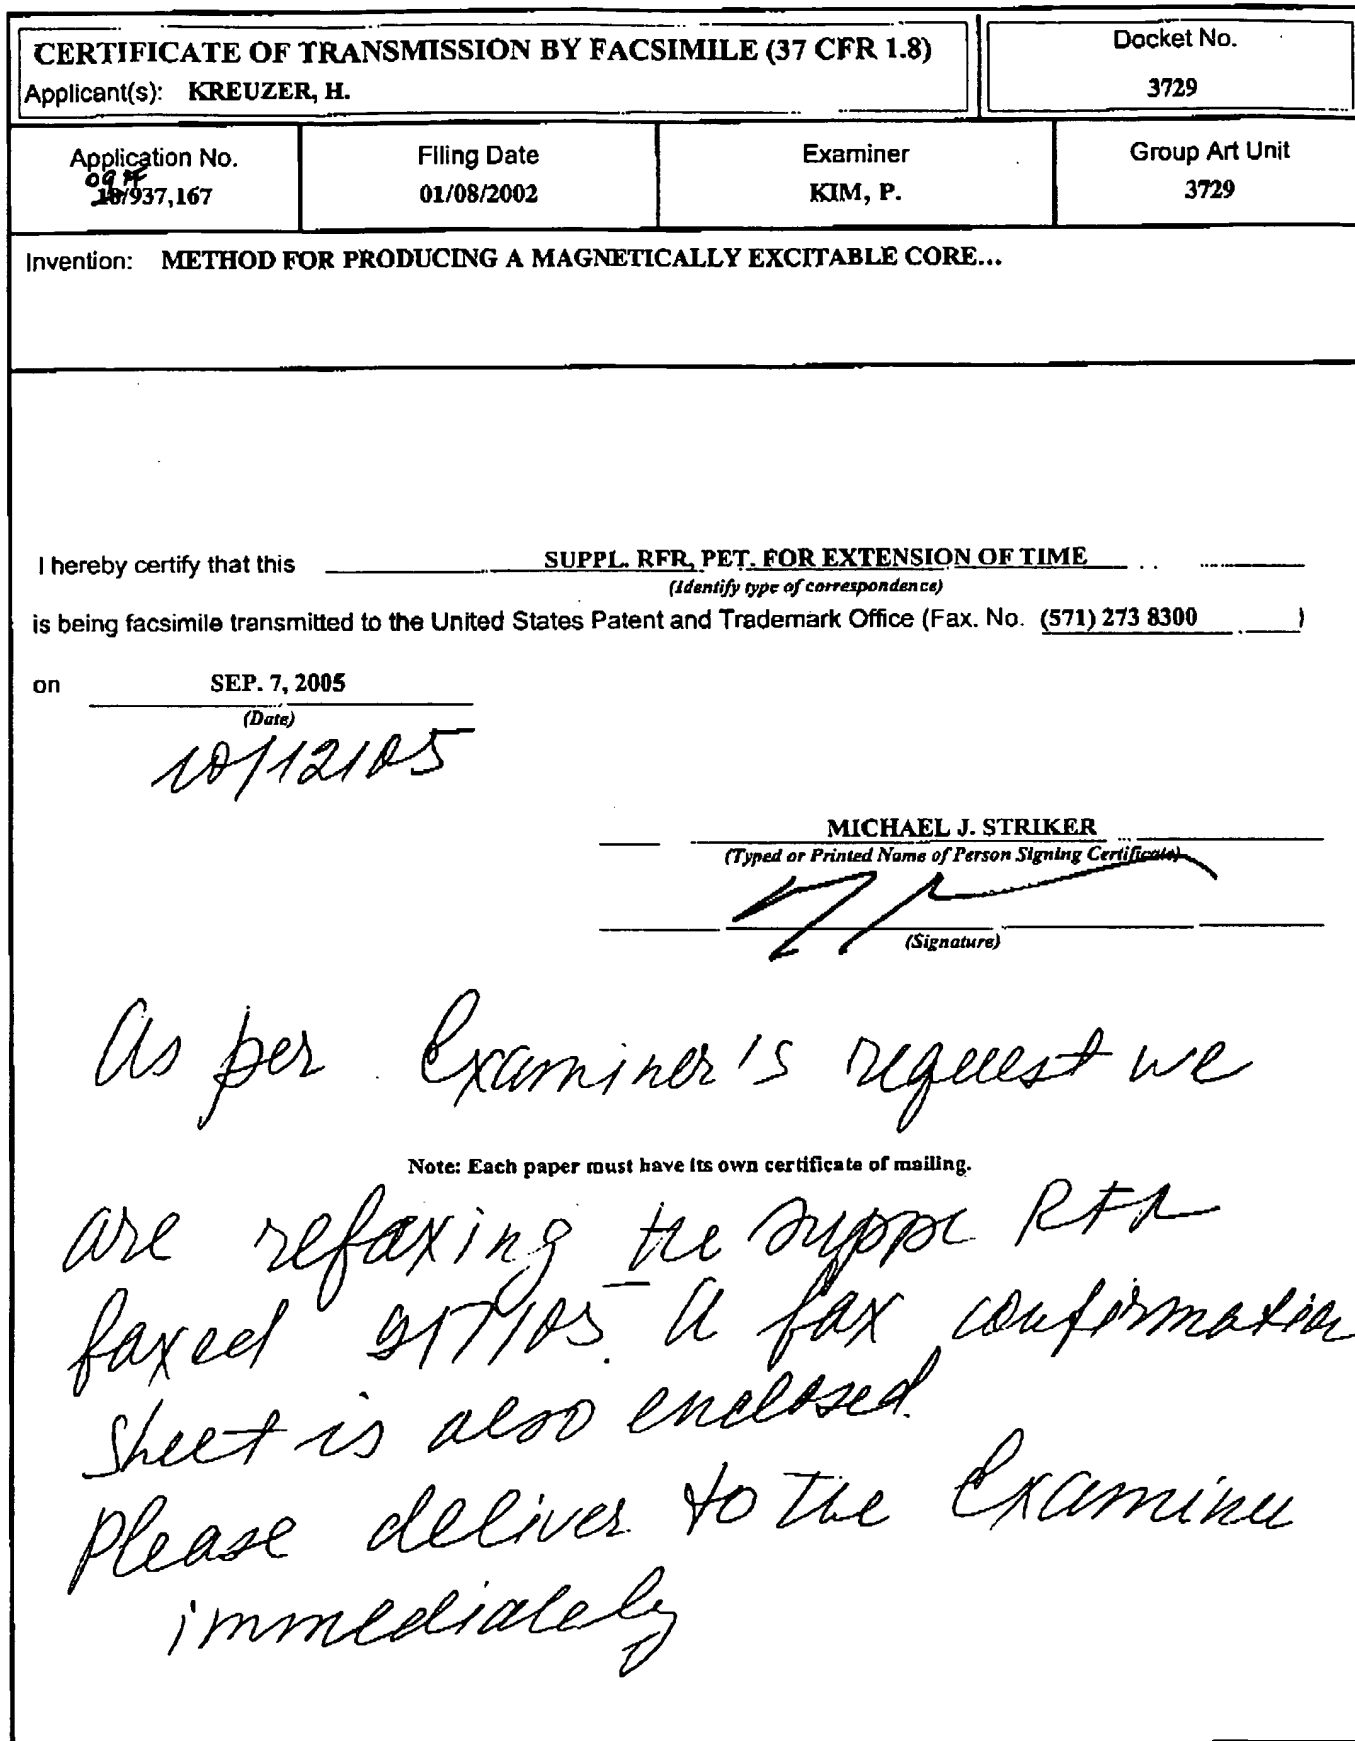 CERTIFICATE OF TRANSMISSION BY FACSIMILE (37 CFR 1.8)
Applicant(s): KREUZER, H.
Docket No.
3729
Application No.
09
10/937,167
Filing Date
01/08/2002
Examiner
KIM, P.
Group Art Unit
3729
Invention: METHOD FOR PRODUCING A MAGNETICALLY EXCITABLE CORE...
I hereby certify that this SUPPL. RFR, PET. FOR EXTENSION OF TIME
(Identify type of correspondence)
is being facsimile transmitted to the United States Patent and Trademark Office (Fax. No. (571) 273 8300 )
on SEP. 7, 2005
(Date)
10/12/05
MICHAEL J. STRIKER
(Typed or Printed Name of Person Signing Certificate)
(Signature)
As per Examiner's request we
Note: Each paper must have its own certificate of mailing.
are refaxing the suppl RFR
faxed 9/7/05. A fax confirmation
sheet is also enclosed.
Please deliver to the Examiner
immediately